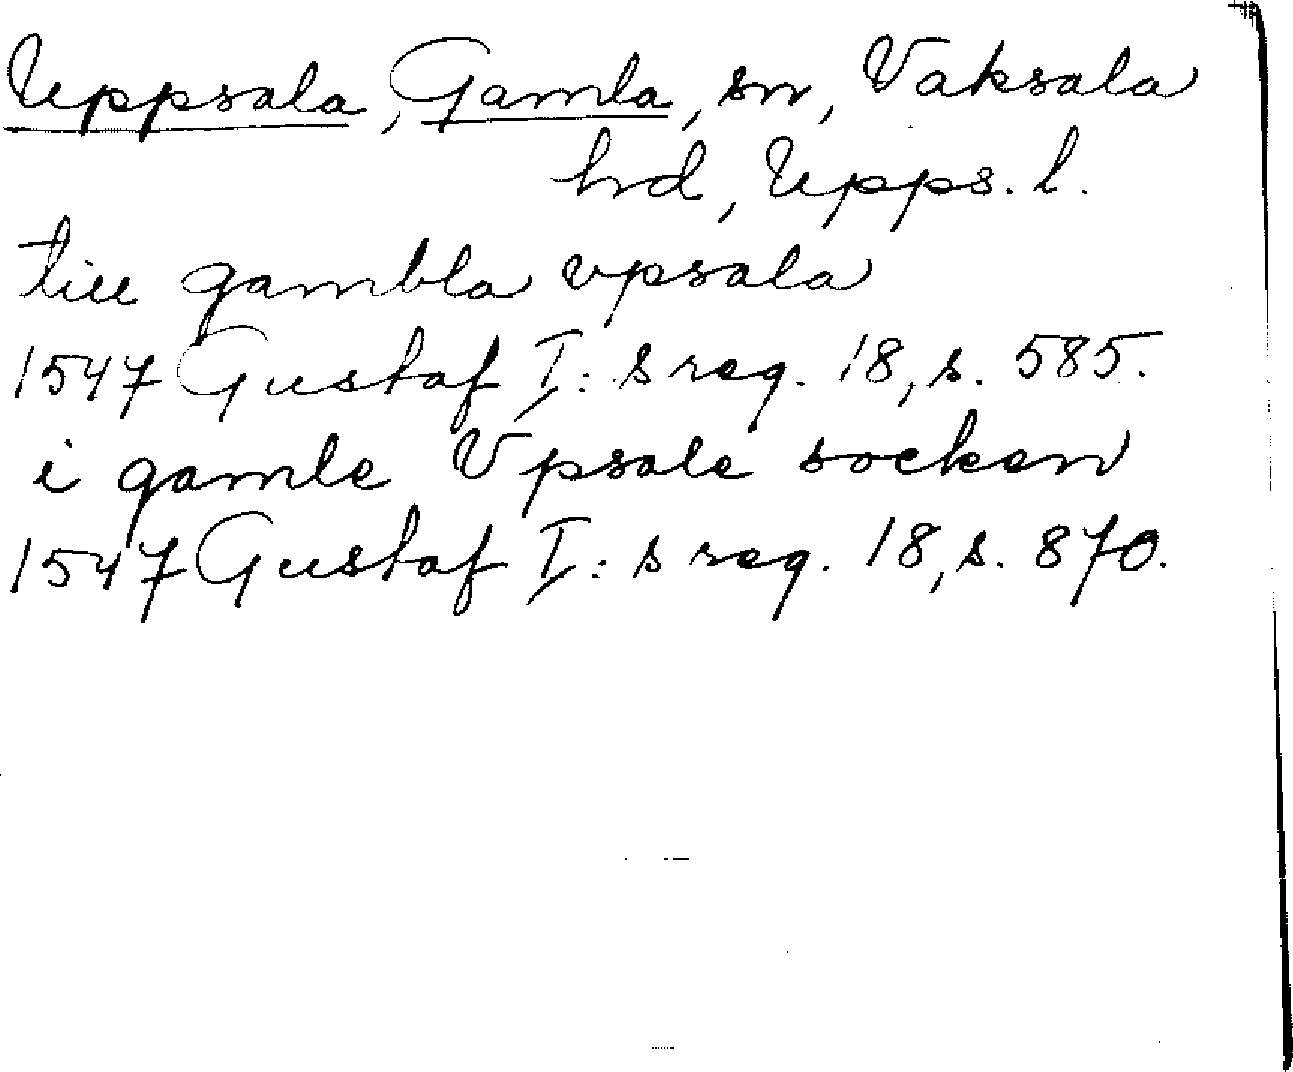 Uppsala, Gamla, sn, Vaksala
hd, Upps. l.
till gambla vpsala
1547 Gustaf I:s reg. 18, s. 585.
i gamle Vpsale socken
1547 Gustaf I:s reg. 18, s. 870.